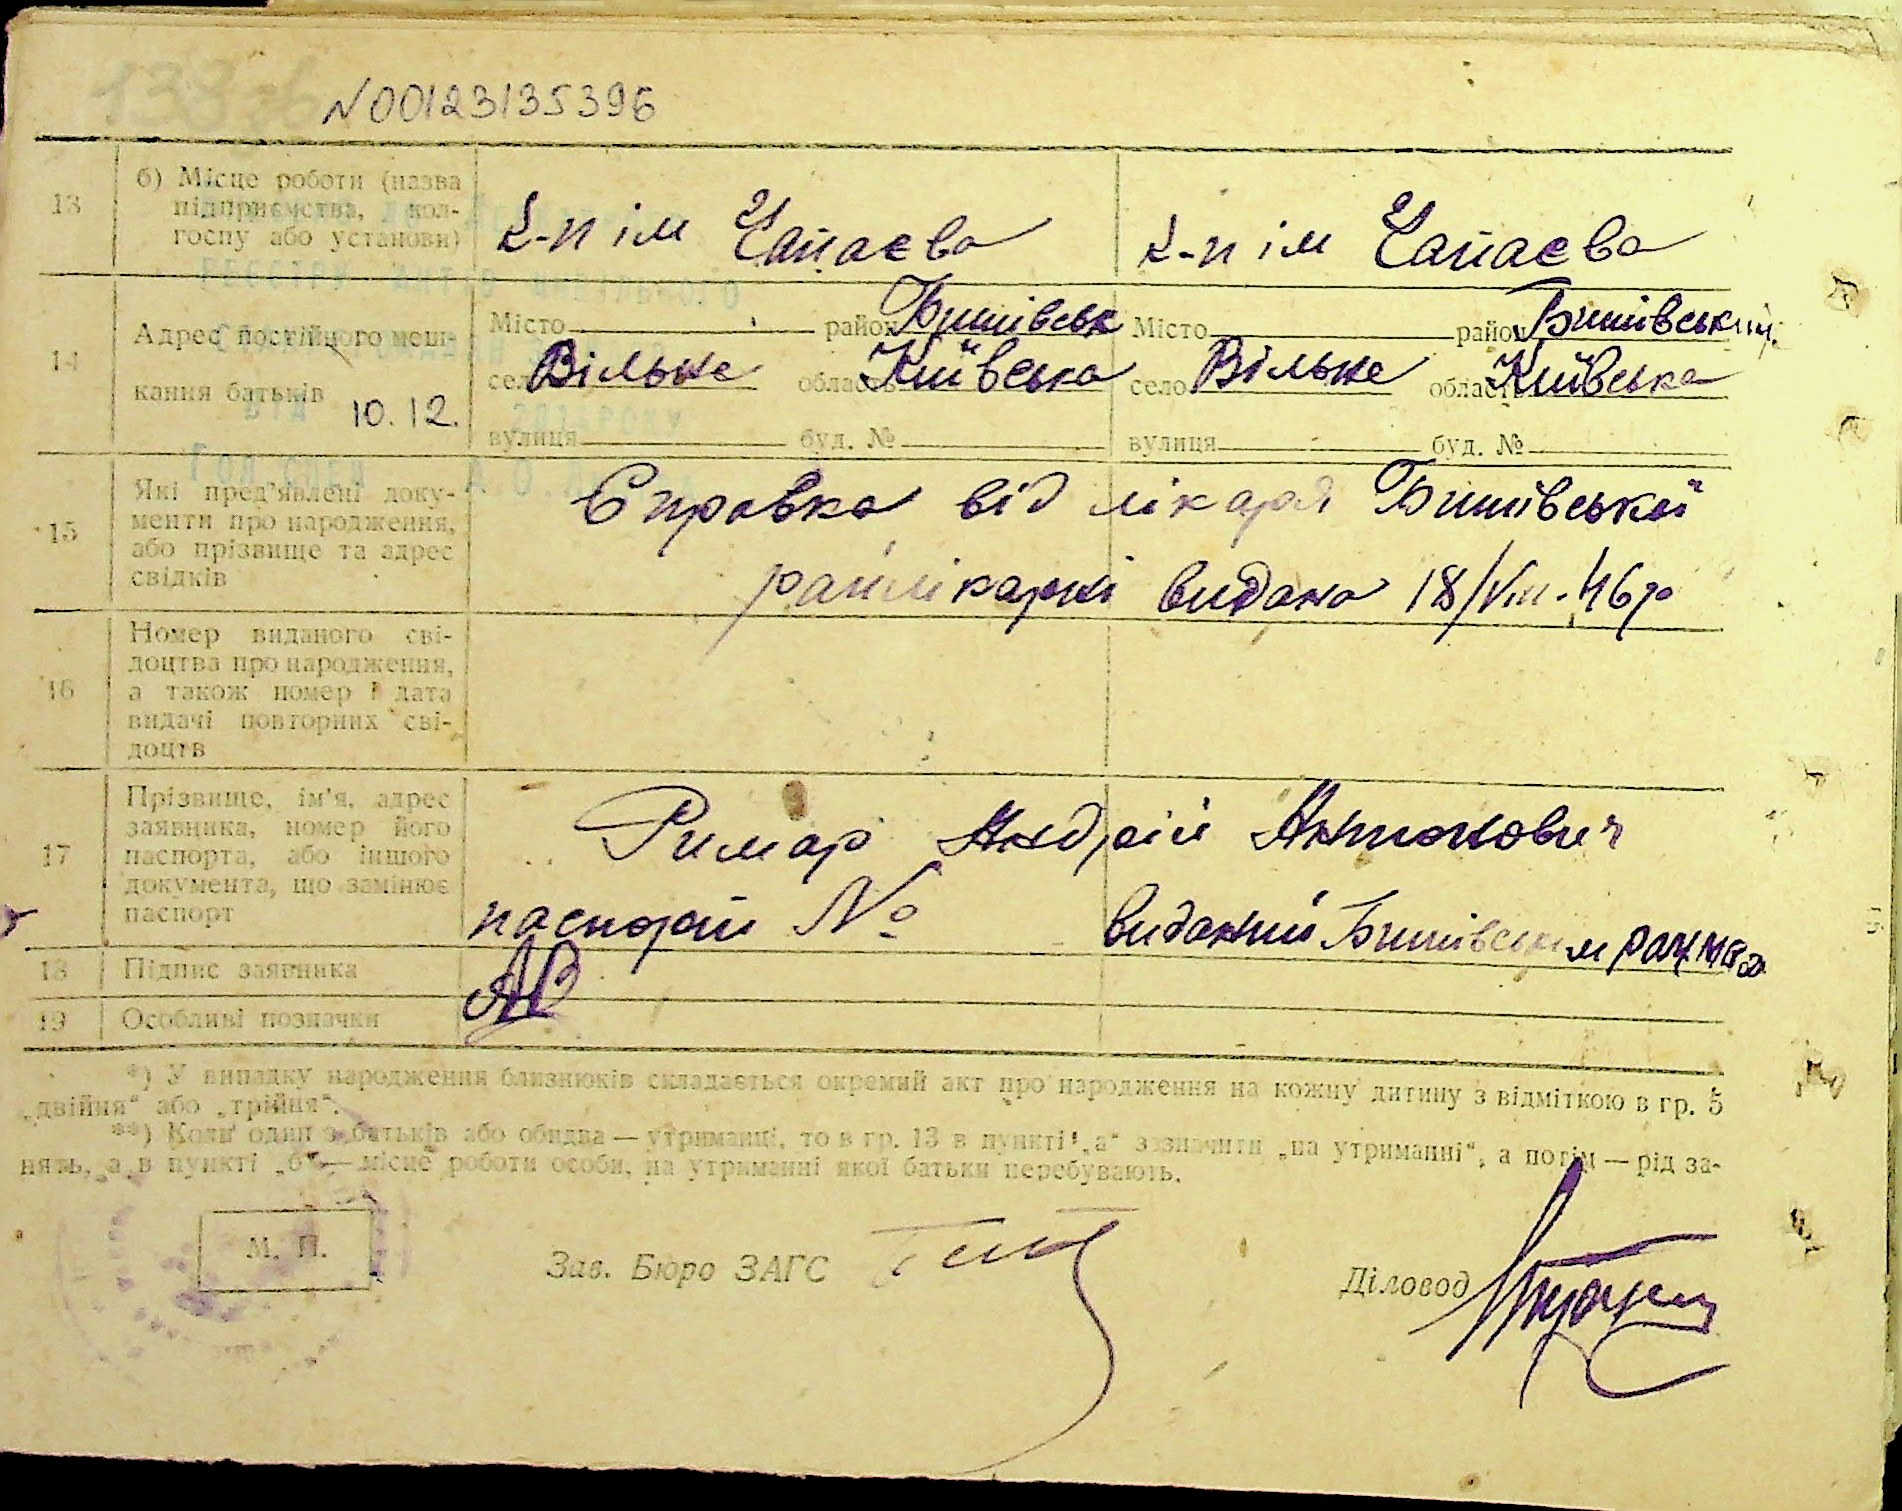 N00123135396
13 б) Місце роботи (назва підприємства, колгоспу або установи) к-п ім Чапаєва к-п ім Чапаєва
14 Адрес постійного мешкання батьків 10.12.
Місто район Бишівськ Місто район Бишівський
село Вільне область Київська село Вільне область Київська
вулиця буд. № вулиця буд. №
15 Які пред'явлені документи про народження, або прізвище та адрес свідків
Справка від лікаря Бишівської
райлікарні видана 18/VIII-46р
16 Номер виданого свідоцтва про народження, а також номер і дата видачі повторних свідоцтв
17 Прізвище, ім'я, адрес заявника, номер його паспорта, або іншого документа, що замінює паспорт
Римар Андрій Антонович
паспорт № виданий Бишівським
18 Підпис заявника
19 Особливі позначки
*) У випадку народження близнюків складається окремий акт про народження на кожну дитину з відміткою в гр. 5
„двійня“ або „трійня“.
**) Коли один з батьків або обидва — утриманці, то в гр. 13 в пункті „а“ зазначити „на утриманні“, а потім — рід за-
нять, а в пункті „б“ — місце роботи особи, на утриманні якої батьки перебувають.
М. П. Зав. Бюро ЗАГС Діловод